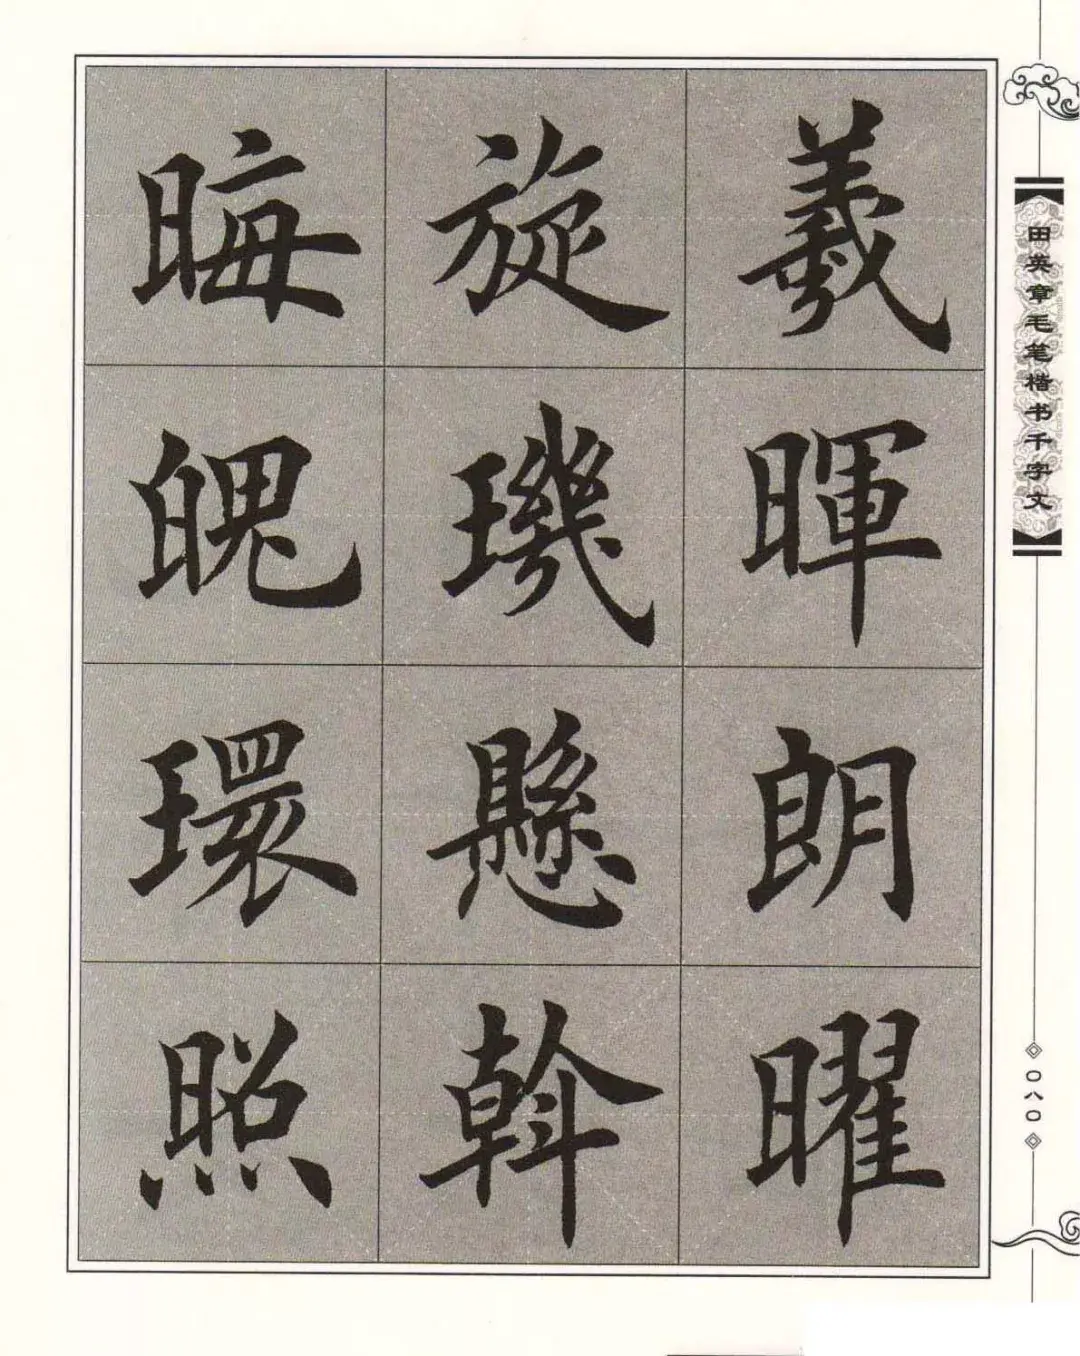 羲暉朗曜
旋璣懸斡
晦魄環照
田英章毛笔楷书千字文
〇八〇